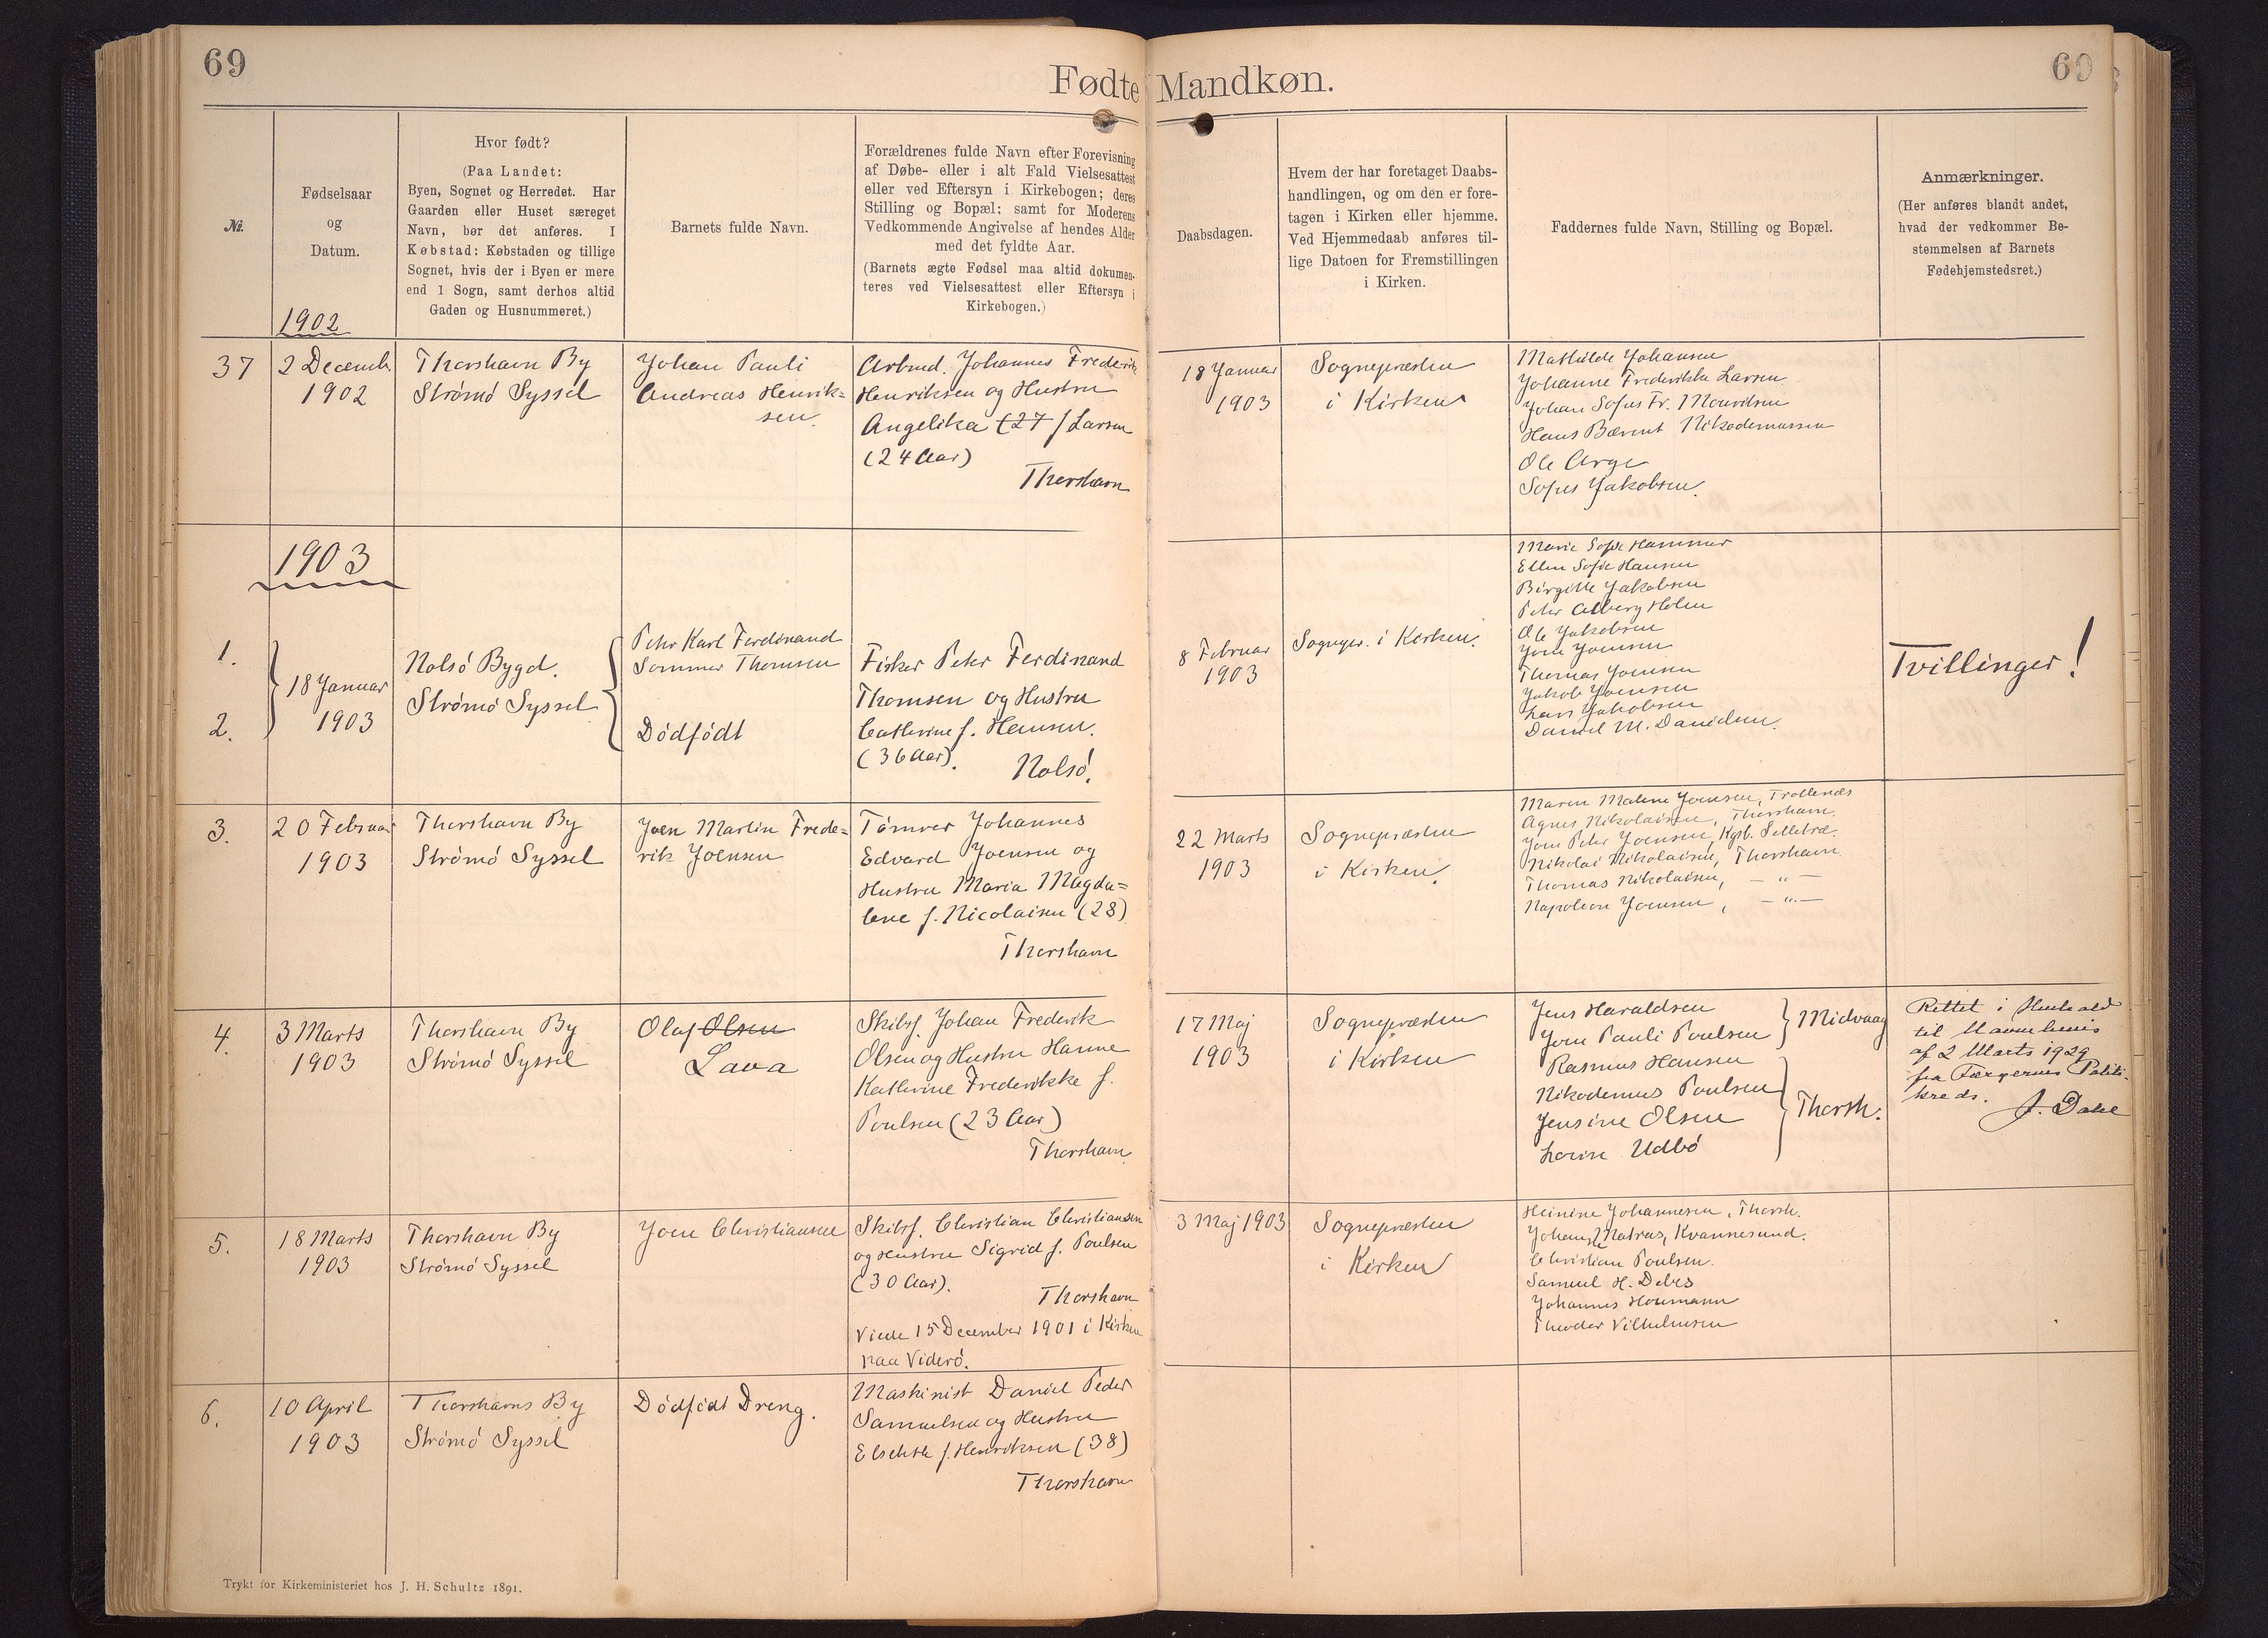 69
Fødte Mandkøn.
69
№.
Fødselsaar
og
Datum.
1902
Hvor født?
(Paa Landet:
Byen, Sognet og Herredet. Har
Gaarden eller Huset særeget
Navn, bør det anføres. I
Købstad: Købstaden og tillige
Sognet, hvis der i Byen er mere
end 1 Sogn, samt derhos altid
Gaden og Husnummeret.)
Barnets fulde Navn.
Forældrenes fulde Navn efter Forevisning
af Døbe- eller i alt Fald Vielsesattest
eller ved Eftersyn i Kirkebogen; deres
Stilling og Bopæl; samt for Moderens
Vedkommende Angivelse af hendes Alder
med det fyldte Aar.
(Barnets ægte Fødsel maa altid dokumen-
teres ved Vielsesattest eller Eftersyn i
Kirkebogen.)
Daabsdagen.
Hvem der har foretaget Daabs-
handlingen, og om den er fore-
tagen i Kirken eller hjemme.
Ved Hjemmedaab anføres til-
lige Datoen for Fremstillingen
i Kirken.
Faddernes fulde Navn, Stilling og Bopæl.
Anmærkninger.
(Her anføres blandt andet,
hvad der vedkommer Be-
stemmelsen af Barnets
Fødehjemstedsret.)
37
2 Decemb.
1902
Thorshavn By
Strömö Syssel
Johan Pauli
Andreas Henrik=
sen.
Arbmd. Johannes Frederik
Henriksen og Hustru
Angelika (27 f Larsen
(24 Aar)
Thorshavn
18 Januar
1903
Sognepræsten
i Kirken
Mathilde Johansen
Johanne Frederikke Larsen
Johan Sofus Fr. Mouritsen
Hans Bærent Nikodemussen
Ole Arge
Sofus Jakobsen.
1903
1.
2.
18 Januar
1903
Nolsö Bygd.
Strömö Syssel
Peter Karl Ferdinand
Sommer Thomsen
Dödfödt
Fisker Peter Ferdinand
Thomsen og Hustru
Cathrine f. Hansen.
(36 Aar).
Nolsö.
8 Februar
1903
Sognepr. i Kirken.
Marie Sofie Hammer
Ellen Sofie Hansen
Birgitte Jakobsen
Peter Alberg Holm
Ole Jakobsen
Joen Joensen
Thomas Joensen
Jakob Joensen
Lars Jakobsen
Daniel M. Danielsen.
Tvillinger!
3.
20 Februar
1903
Thorshavn By
Strömö Syssel
Joen Martin Frede=
rik Joensen
Tömrer Johannes
Edvard Joensen og
Hustru Maria Magda=
lene f. Nicolaisen (28)
Thorshavn
22 Marts
1903
Sognepræsten
i Kirken.
Maren Malene Joensen, Trøllenæs
Agnes Nikolaisen, Thorshavn.
Joen Peter Joensen, Kgsb. Selletræ.
Nikolai Nikolaisen, Thorshavn
Thomas Nikolaisen, — " —
Napoleon Joensen, — " —
4.
3 Marts
1903
Thorshavn By
Strömö Syssel
Olaf Olsen
Lava
Skibsf. Johan Frederik
Olsen og Hustru Hanne
Kathrine Frederikke f.
Poulsen (23 Aar)
Thorshavn
17 Maj
1903
Sognepræsten
i Kirken
Jens Haraldsen
Joen Pauli Poulsen
Midvaag
Rasmus Hansen
Nikodemus Poulsen
Jensine Olsen
Lovise Udbö
Thorsh.
Rettet i Henhold
til Navnebevis
af 2 Marts 1929
fra Færøernes Politi-
kreds.
J. Dahl
5.
18 Marts
1903
Thorshavn By
Strömö Syssel
Joen Christiansen
Skibsf. Christian Christiansen
og Hustru Sigrid f. Poulsen
(30 Aar).
Thorshavn
Viede 15 December 1901 i Kirken
paa Viderö.
3 Maj 1903
Sognepræsten
i Kirken
Heinine Johannesen, Thorsh.
Johan Matras, Kvannesund.
Christian Poulsen.
Samuel H. Debes
Johannes Houmann
Theodor Vilhelmsen
6.
10 April
1903
Thorshavns By
Strömö Syssel
Dödfödt Dreng.
Maskinist Daniel Peder
Samuelsen og Hustru
Elsebeth f. Henriksen (38)
Thorshavn
Trykt for Kirkeministeriet hos J. H. Schultz 1891.